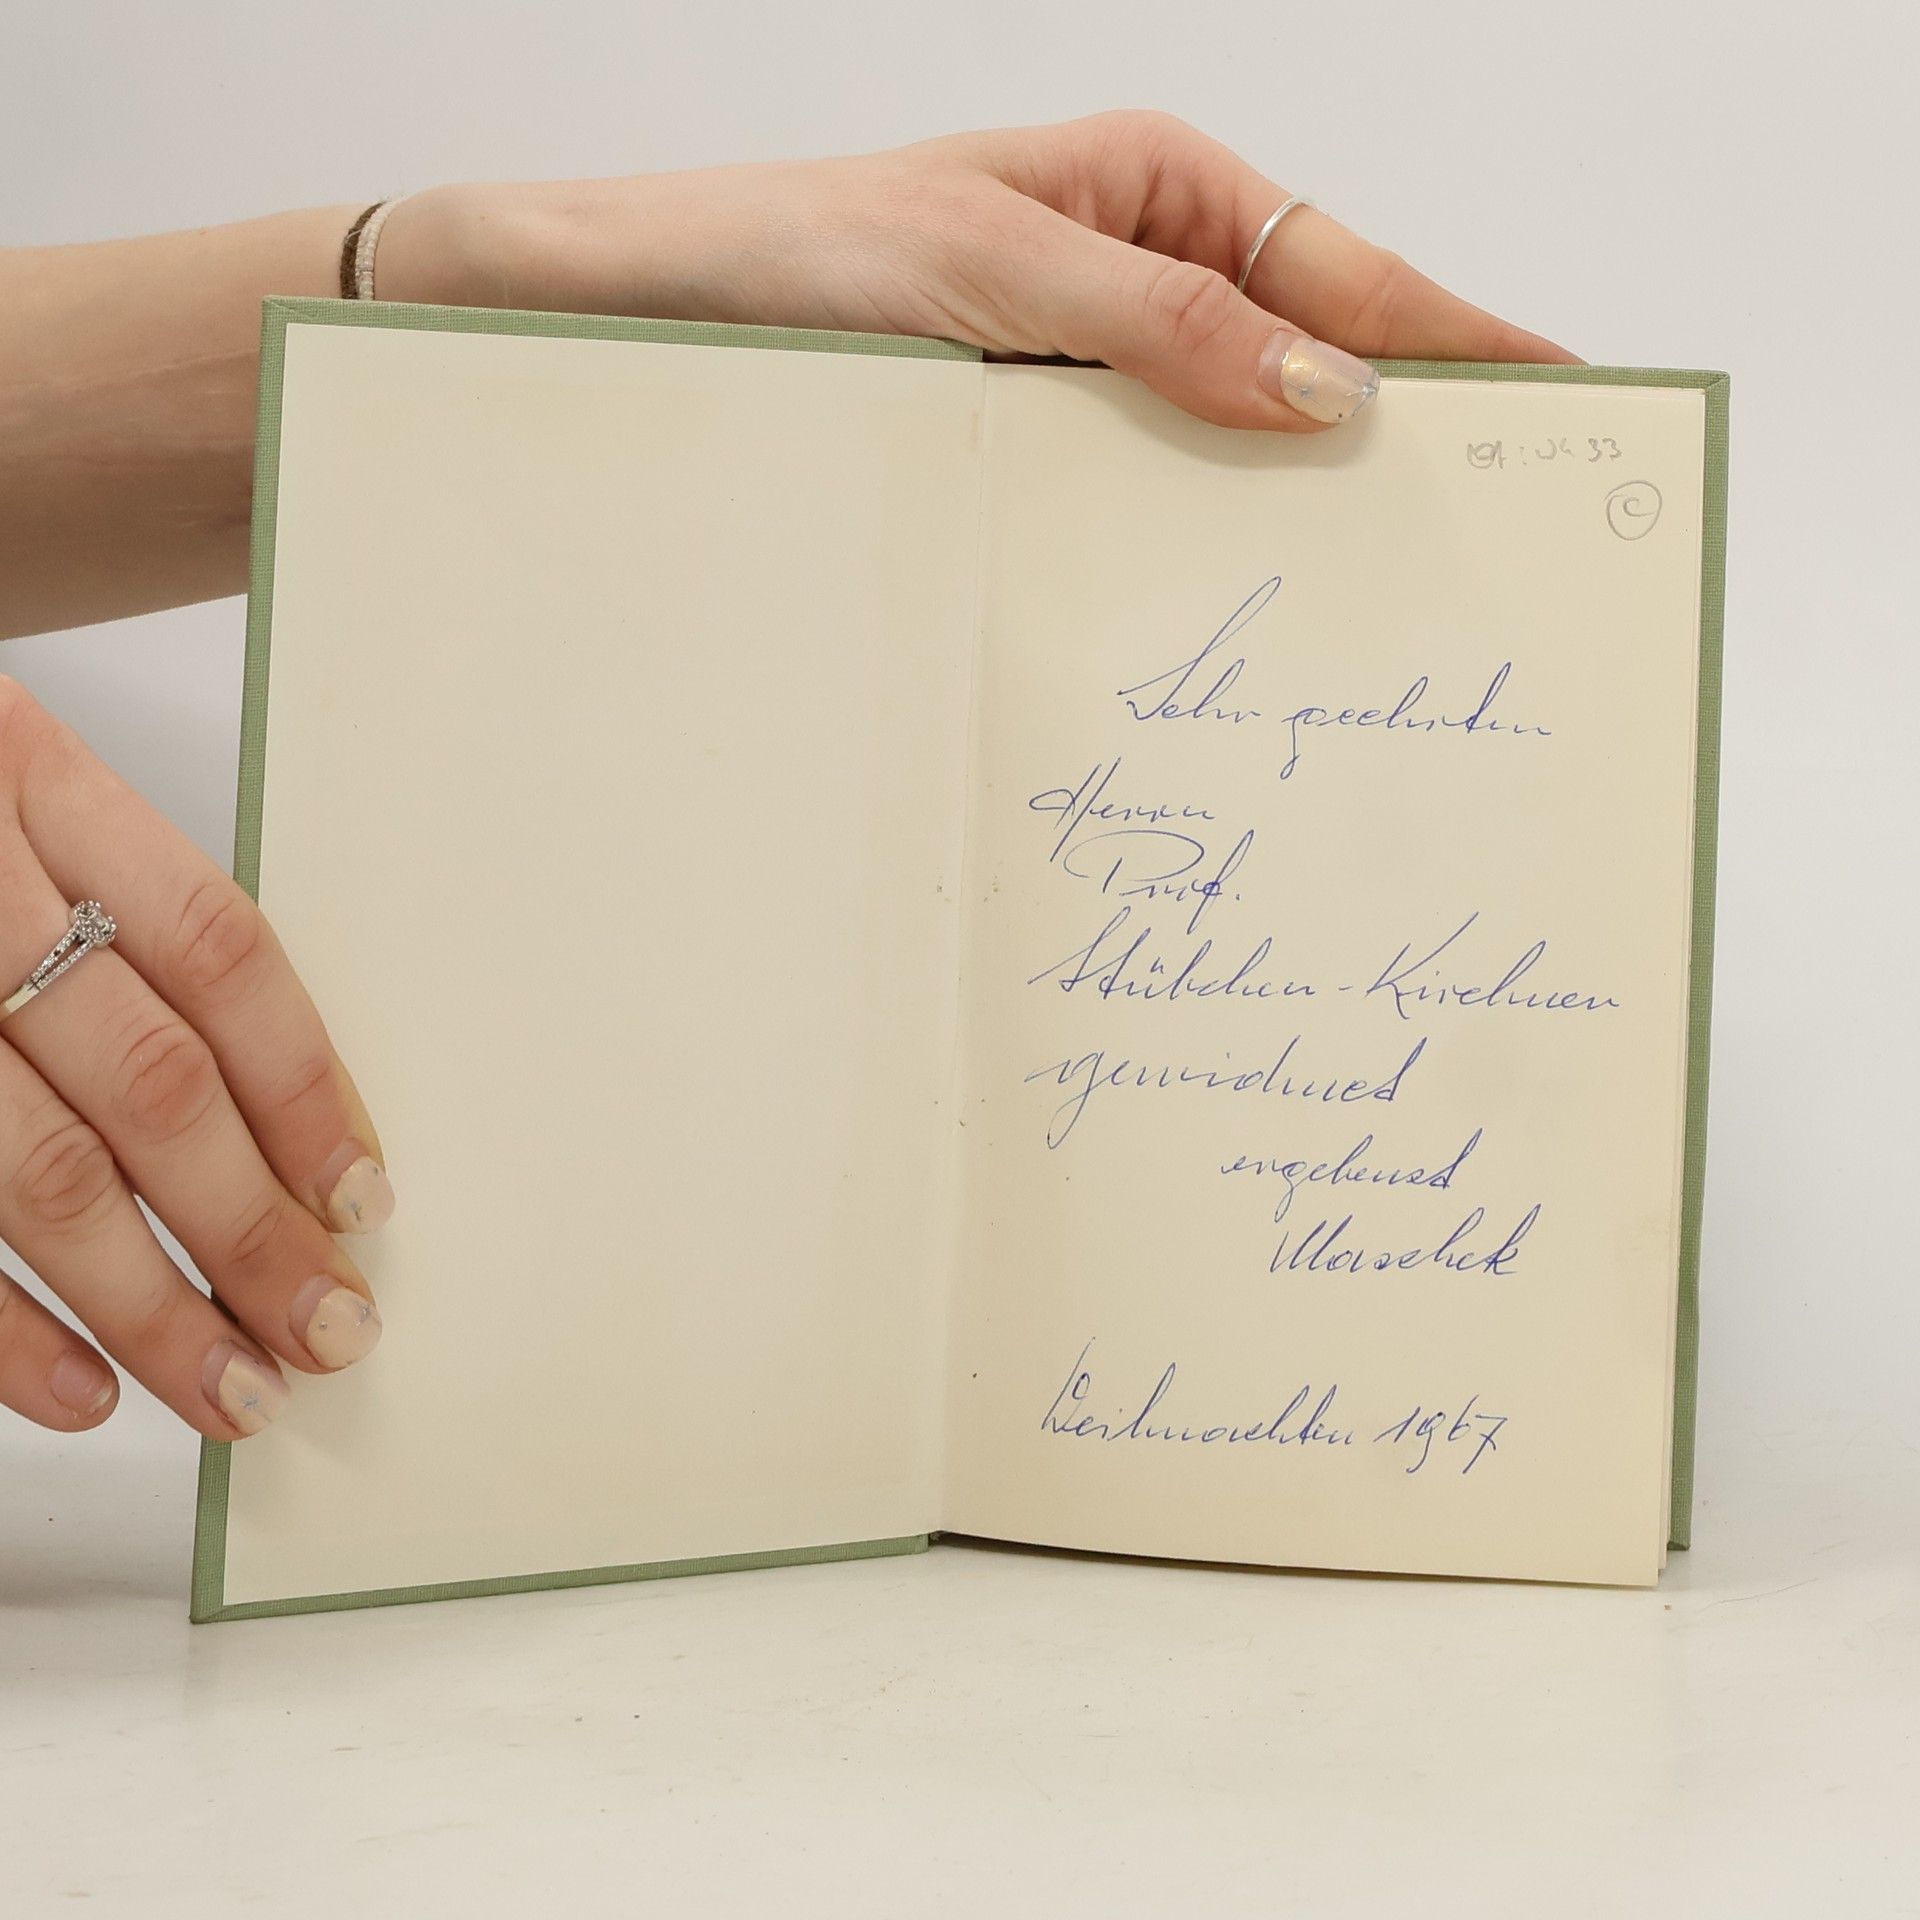 33
C
Sehr geehrten
Herrn
Prof.
Stübchen-Kirchner
gewidmet
ergebenst
Maschek
Weihnachten 1967